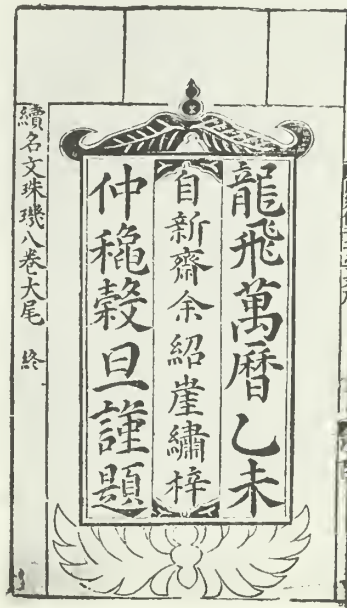 龍飛萬曆乙未
自新齋余紹崖繡梓
仲穐穀旦謹題
續名文珠璣八卷大尾 終